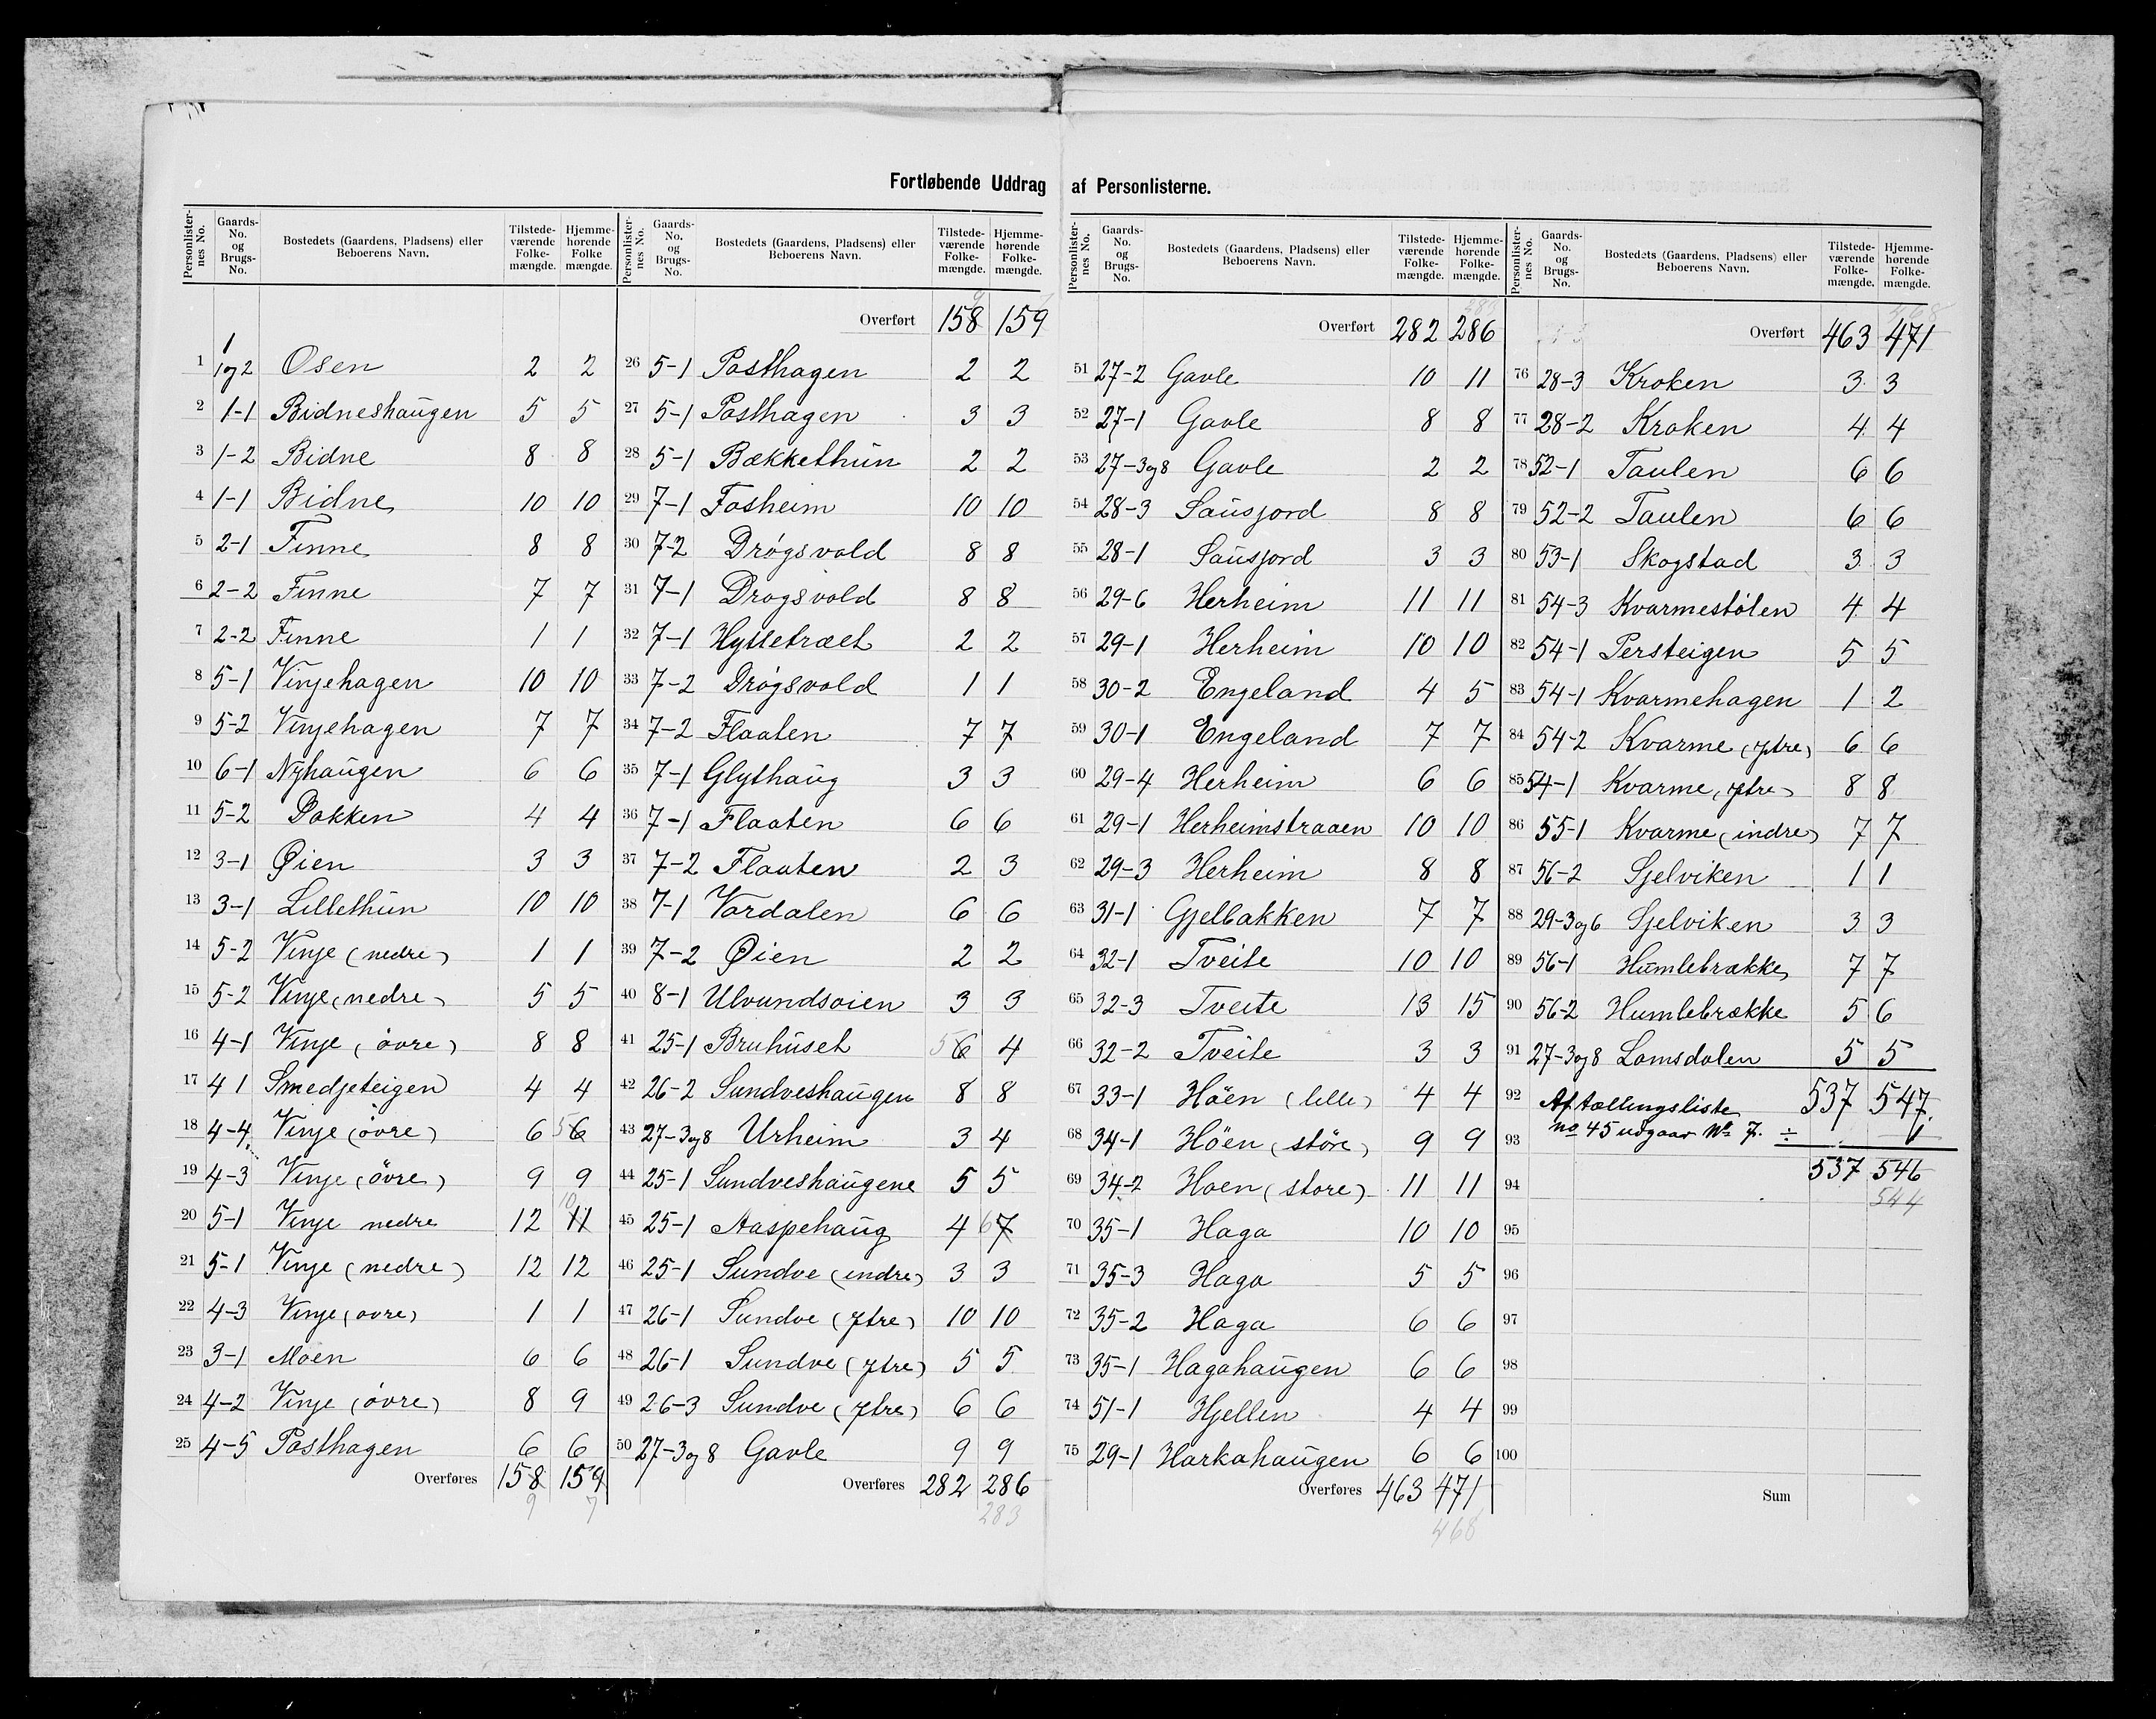 Fortløbende Uddrag af Personlisterne.
Personlister-nes No. Gaards-No. og Brugs-No. Bostedets (Gaardens, Pladsens) eller Beboerens Navn. Tilstede-værende Folke-mængde. Hjemme-hørende Folke mængde.
1 1 1 og 2 Osen 2 2
2 1-1 Bidneshaŭgen 5 5
3 1-2 Bidne 8 8
4 1-1 Bidne 10 10
5 2-1 Finne 8 8
6 2-2 Finne 7 7
7 2-2 Finne 1 1
8 5-1 Vinjehagen 10 10
9 5-2 Vinjehagen 7 7
10 6-1 Nyhaŭgen 6 6
11 5-2 Bakken 4 4
12 3-1 Øien 3 3
13 3-1 Lillethŭn 10 10
14 5-2 Vinje (nedre) 1 1
15 5-2 Vinje (nedre) 5 5
16 4-1 Vinje (øvre) 8 8
17 4 1 Smedjeteigen 4 4
18 4-4 Vinje (øvre) 6 5 6
19 4-3 Vinje (øvre) 9 9
20 5-1 Vinje nedre 12 10 11
21 5-1 Vinje (nedre) 12 12
22 4-3 Vinje (ovre) 1 1
23 3-1 Moen 6 6
24 4-2 Vinje (øvre) 8 9
25 4-5 Posthagen 6 6
Overføres 158 159
9 7
Personlister-nes No. Gaards-No. og Brugs-No. Bostedets (Gaardens, Pladsens) eller Beboerens Navn. Tilstede-værende Folke-mængde. Hjemme-hørende Folke-mængde.
Overført 158 159
26 5-1 Posthagen 2 2
27 5-1 Posthagen 3 3
28 5-1 Bækkethŭn 2 2
29 7-1 Fosheim 10 10
30 7-2 Drøgsvold 8 8
31 7-1 Drogsvold 8 8
32 7-1 Hyttetræet 2 2
33 7-2 Drøgsvold 1 1
34 7-2 Flaaten 7 7
35 7-1 Glythaŭg 3 3
36 7-1 Flaaten 6 6
37 7-2 Flaaten 2 3
38 7-1 Vordalen 6 6
39 7-2 Øien 2 2
40 8-1 Ulvundsoien 3 3
41 25-1 Bruhŭset 5 6 4
42 26-2 Sundveshaŭgen 8 8
43 27-3og8 Urheim 3 4
44 25-1 Sundveshaŭgene 5 5
45 25-1 Aaspehaŭg 4 6 7
46 25-1 Sundve (indre) 3 3
47 26-1 Sundve (ytre) 10 10
48 26-1 Sundve (ytre) 5 5
49 26-3 Sundve (ytre) 6 6
50 27-3og8 Gavle 9 9
Overføres 282 286
283
Personlister-nes No. Gaards-No. og Brugs-No. Bostedets (Gaardens, Pladsens) eller Beboerens Navn. Tilstede-værende Folke-mængde. Hjemme-hørende Folke-mængde.
Overført 282 286
51 27-2 Gavle 10 11
52 27-1 Gavle 8 8
53 27-3og8 Gavle 2 2
54 28-3 Saŭsjord 8 8
55 28-1 Saŭsjord 3 3
56 29-6 Herheim 11 11
57 29-1 Herheim 10 10
58 30-2 Engeland 4 5
59 30-1 Engeland 7 7
60 29-4 Herheim 6 6
61 29-1 Herheimstraaen 10 10
62 29-3 Herheim 8 8
63 31-1 Gjelbakken 7 7
64 32-1 Tveite 10 10
65 32-3 Tveite 13 15
66 32-2 Tveite 3 3
67 33-1 Höen (lille) 4 4
68 34-1 Höen (störe) 9 9
69 34-2 Hoen (store) 11 11
70 35-1 Haga 10 10
71 35-3 Haga 5 5
72 35-2 Haga 6 6
73 35-1 Hagahaŭgen 6 6
74 51-1 Hjellen 4 4
75 29-1 Horkahaŭgen 6 6
Overføres 463 471
468
Personlister-nes No. Gaards-No. og Brugs-No. Bostedets (Gaardens, Pladsens) eller Beboerens Navn. Tilstede-værende Folke-mængde. Hjemme-hørende Folke-mængde.
Overført 463 471
76 28-3 Kroken 3 3
77 28-2 Kroken 4 4
78 52-1 Taulen 6 6
79 52-2 Taulen 6 6
80 53-1 Skogstad 3 3
81 54-3 Kvarmestølen 4 4
82 54-1 Persteigen 5 5
83 54-1 Kvarmehagen 1 2
84 54-2 Kvarme (ytre) 6 6
85 54-1 Kvarme (ytre) 8 8
86 55-1 Kvarme (indre) 7 7
87 56-2 Sjelviken 1 1
88 29-3og6 Sjelviken 3 3
89 56-1 Hŭmlebrække 7 7
90 56-2 Humlebrække 5 6
91 27-3og8 Lomsdalen 5 5
92 Aftællingsliste 537 547
93 no 45 udgaar No 7. ÷ 1
94 537 546
544
95
96
97
98
99
100
Sum